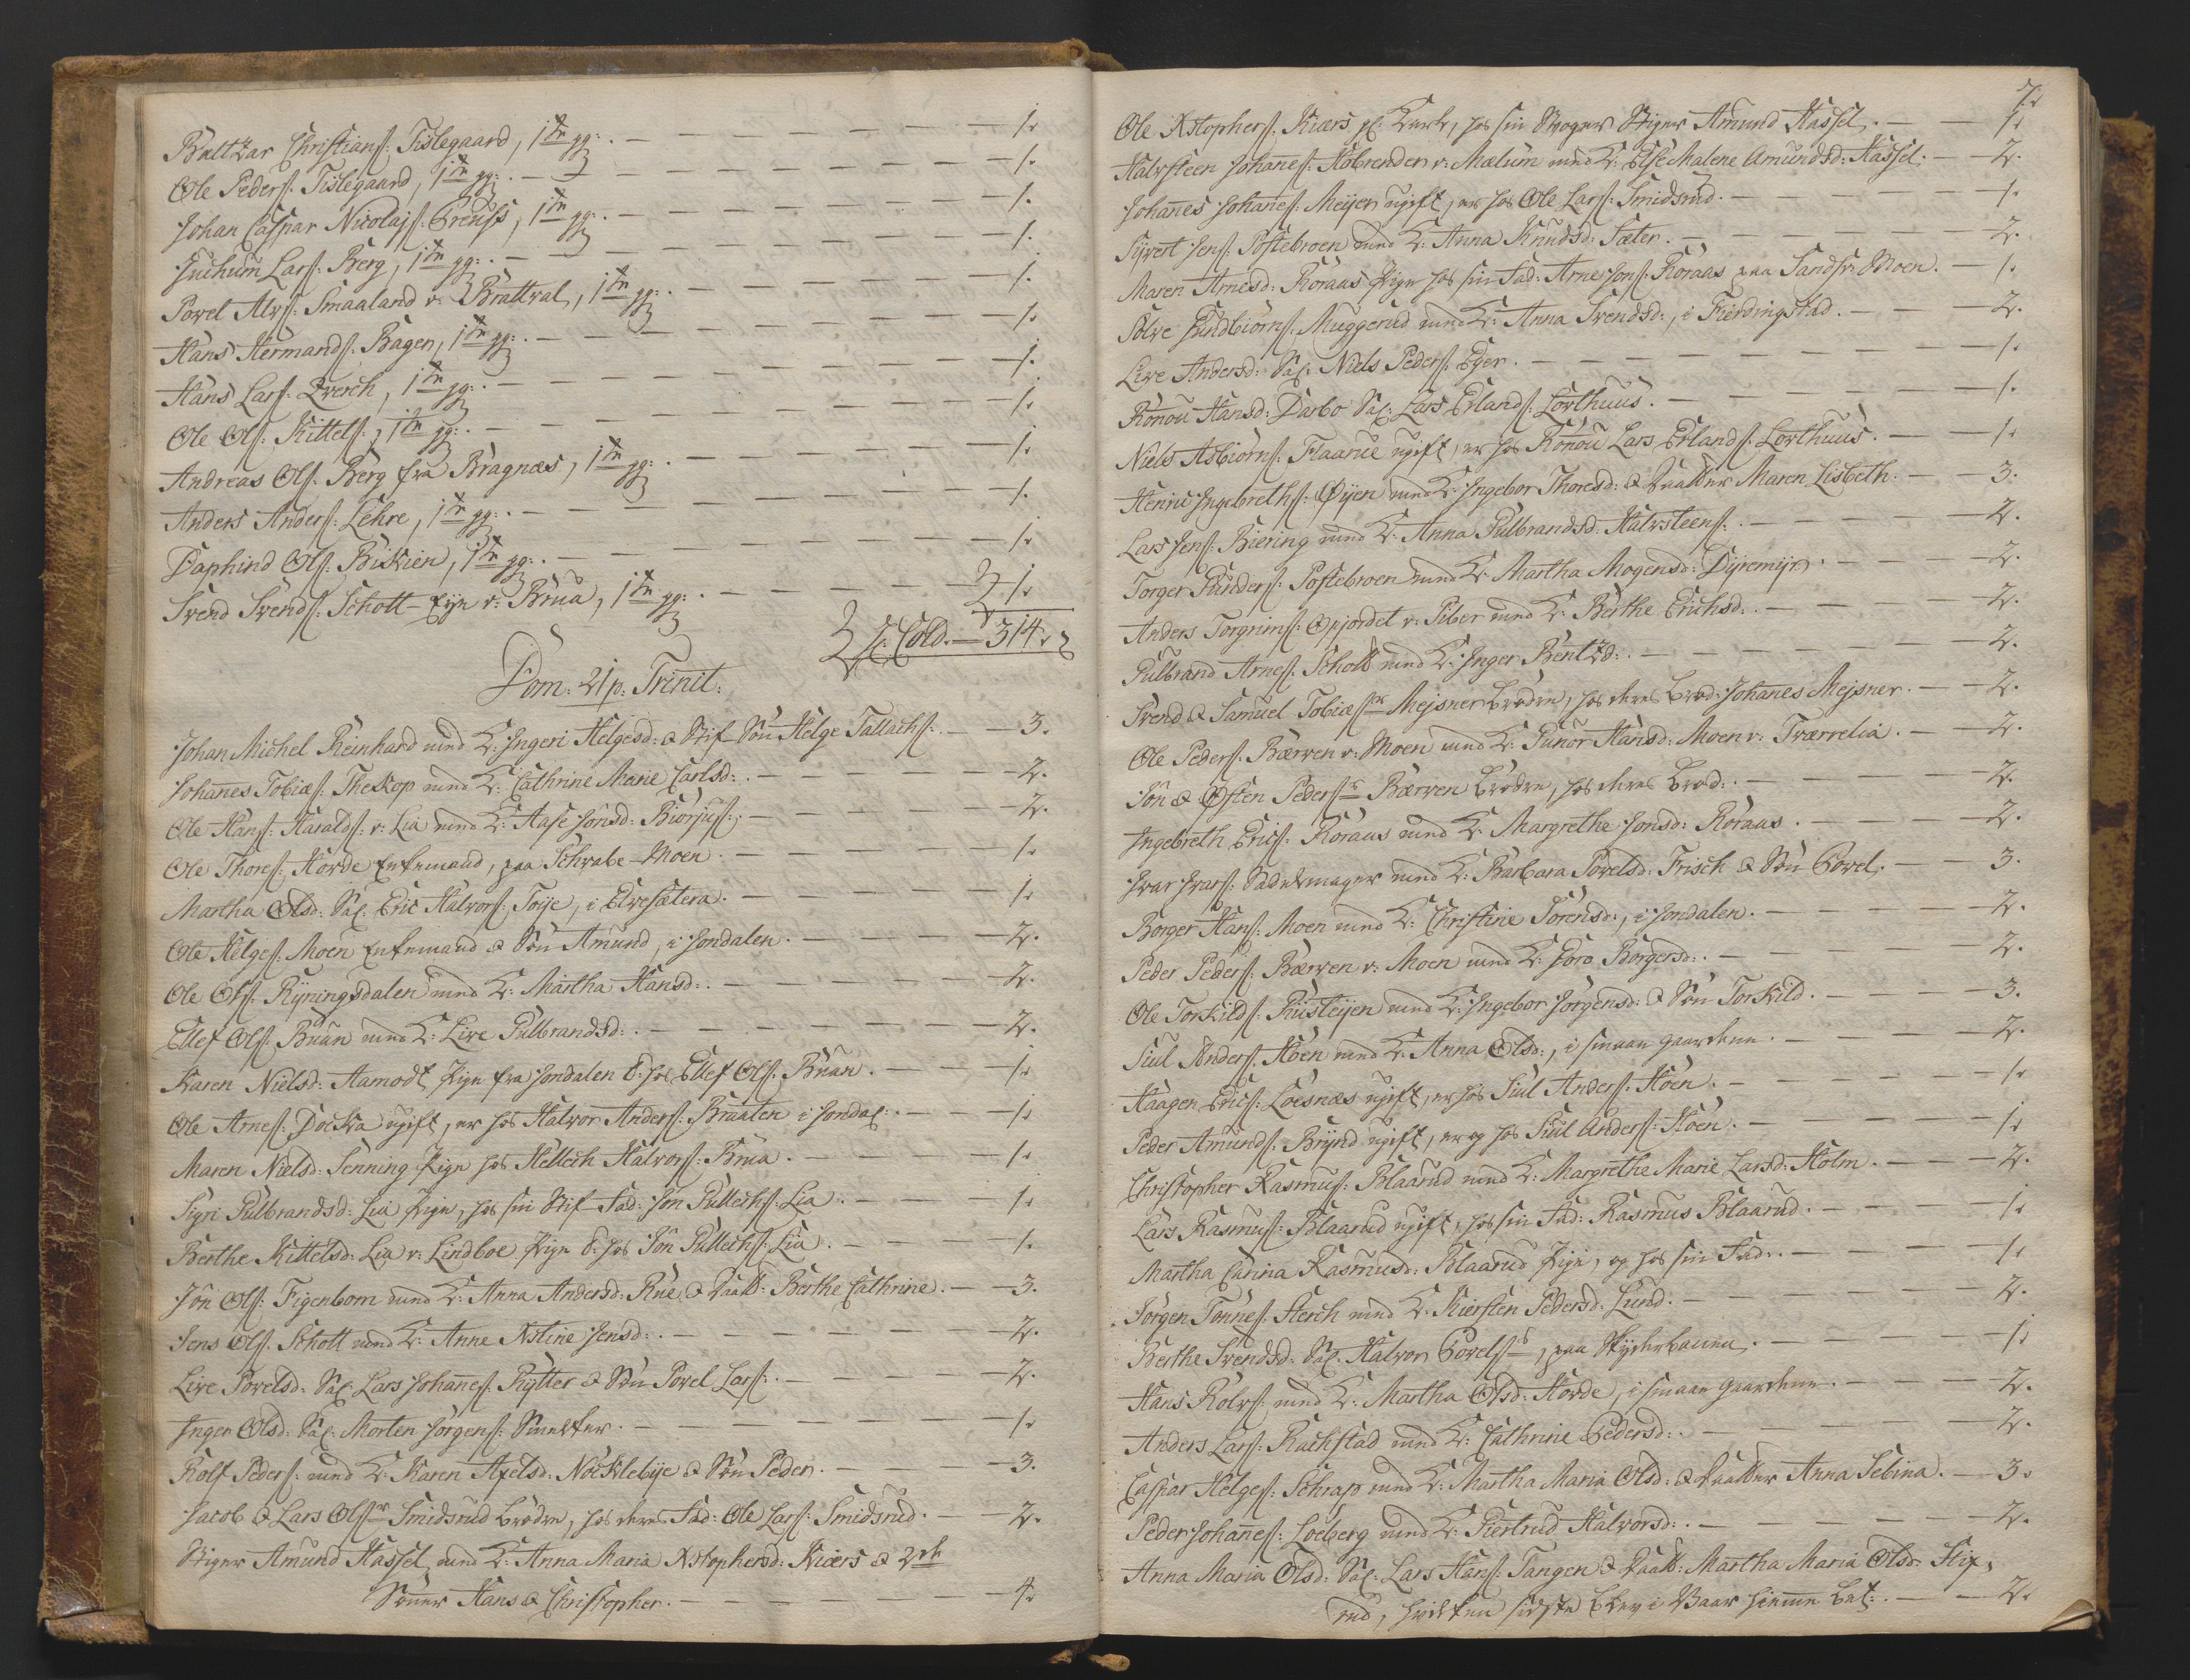 Baltzar Christians: Tislegaard, 1ste gg: — 1.
Ole Peders: Tislegaard, 1ste gg: — 1.
Johan Caspar Nicolajs: Preuss, 1ste gg: — 1.
Juchum Lars: Berg, 1ste gg: — 1.
Povel Alvs: Smaaland v: Brattval, 1ste gg: — 1.
Hans Hermands: Bager, 1ste gg: — 1.
Hans Lars: Qverch, 1ste gg: — 1.
Ole Ols: Kittels:, 1ste gg: — 1.
Andreas Ols: Berg fra Bragnæs, 1ste gg: — 1.
Anders Anders: Lehre, 1ste gg: — 1.
Daphind Ols: Bikien, 1ste gg: — 1.
Svend Svends: Schott-Eye v: Brua, 1ste gg: — 1.
314.
Dom: 21 p: Trinit:
Johan Michel Reinhard med K: Ingeri Helgesd: & Stif-Søn Helge Tallachs: — 3.
Johannes Tobiæs: Theskop med K: Cathrine Marie Carlsd: — 2.
Ole Hans: Haralds: v: Lia med K: Aase Jonsd: Biørjus: — 2.
Ole Thores: Hovde Enkemand, paa Schwabe-Moen. — 1.
Martha Olsd: Sal: Eric Halvors: Toije, i Elvesætera. — 1.
Ole Helges: Moen Enkemand & Søn Amund, i Jondalen. — 2.
Ole Ols: Ryningsdalen med K: Martha Hansd: — 2.
Ellef Ols: Buan med K: Live Gulbrandsd: — 2.
Karen Nielsd: Aamodt Pige fra Jondalen t: hos Ellef Ols: Buan. — 1.
Ole Arnes: Docka ugift, er hos Halvor Anders: Braaten i Jondal: — 1.
Maren Nielsd: Senning Pige hos Hellech Halvors: Brua. — 1.
Sigri Gulbrandsd: Lia Pige, hos sin Stif-Fad: Jon Gullechs: Lia. — 1.
Berthe Kittelsd: Lia v: Lindboe Pige t: hos Jon Gullechs: Lia. — 1.
Jon Ols: Figenbom med K: Anna Andersd: Rue & Daatt: Berthe Cathrine. — 3.
Jens Ols: Schott med K: Anne Xstine Jensd: — 2.
Live Povelsd: Sal: Lars Johannes: Rytter & Søn Povel Lars: — 2.
Inger Olsd: Sal: Morten Jørgens: Smelter. — 1.
Rolf Peders: med K: Karen Axelsd: Nøcklebye & Søn Peder. — 3.
Jacob & Lars Olssr Smidsrud Brødre, hos deres Fad: Ole Lars: Smidsrud. — 2.
Stiger Amund Hassel med K: Anna Maria Xstophersd: Kiærs & 2de
Sønner Hans & Christopher. — 4.
7.
Ole Xstophers: Kiærs gl: Karl, hos sin Svoger Stiger Amund Hassel. — 1.
Halvsteen Johannes: Kobrender v: Mælum med K: Else Malene Amundsd: Hassel. — 2.
Johannes Johannes: Meyer ugift, er hos Ole Lars: Smidsrud. — 1.
Syvert Jens: Postebroen med K: Anna Knudsd: Sæter. — 2.
Maren Arnesd: Roraas Pige hos sin Fad: Arne Jons: Roraas paa Sandsv: Moen. — 1.
Sølve Gudbiørns: Muggerud med K: Anna Svendsd:, i Fierdingstad. — 2.
Live Andersd: Sal: Niels Peders: Eger. — 1.
Ronou Hansd: Darbo Sal: Lars Erlands: Lorthuus. — 1.
Niels Asbiørns: Flaarue ugift, er hos Ronou Lars Erlands: Lorthuus. — 1.
Henric Ingebreths: Øyen med K: Ingebor Thoresd: & Daatter Maren Lisbeth. — 3.
Lars Jens: Biering med K: Anna Gulbrandsd: Halvsteens: — 2.
Torger Gunders: Postebroen med K: Martha Mogensd: Dyremyr. — 2.
Anders Torgrims: Opjordet v: Piber med K: Berthe Erichsd: — 2.
Gulbrand Arnes: Schott med K: Inger Bentzd: — 2.
Svend & Samuel Tobiæssr Mejsner Brødre, hos deres Brod: Johannes Mejsner. — 2.
Ole Peders: Bærven v: Moen med K: Gunor Hansd: Moen v: Tværrelia. — 2.
Jon & Østen Pederssr Bærven Brødre, hos deres Brod: — 2.
Ingebreth Erics: Roraas med K: Margrethe Jonsd: Roraas. — 2.
Ivar Ivars: Sadelmager med K: Barbara Povelsd: Frisch & Søn Povel. — 3.
Borger Hans: Moen med K: Christine Sorensd:, i Jondalen. — 2.
Peder Peders: Bærven v: Moen med K: Goro Borgersd: — 2.
Ole Torkilds: Rusteyen med K: Ingebor Jørgensd: & Søn Torkild. — 3.
Siul Anders: Hoen med K: Anna Olsd:, i smaae Gaardene. — 2.
Haagen Erics: Loesnæs ugift, er hos Siul Anders: Hoen. — 1.
Peder Amunds: Brynd ugift, er og hos Siul Anders: Hoen. — 1.
Christopher Rasmus: Blaarud med K: Margrethe Marie Larsd: Holm. — 2.
Lars Rasmus: Blaarud ugift, hos sin Fad: Rasmus Blaarud. — 1.
Martha Carina Rasmusd: Blaarud Pige, og hos sin Fad: — 1.
Jørgen Tønnes: Sterch med K: Kiersten Pedersd: Lund. — 2.
Berthe Svendsd: Sal: Halvor Povels:, paa Skydebanen. — 1.
Hans Rolvs: med K: Martha Olsd: Hovde, i smaae Gaardene. — 2.
Anders Lars: Rachstad med K: Cathrine Pedersd: — 2.
Caspar Helges: Schrap med K: Martha Maria Olsd: & Daatter Anna Sebina. — 3.
Peder Johannes: Loeberg med K: Giertrud Halvorsd: — 2.
Anna Maria Olsd: Sal: Lars Hans: Tangen & Daatt: Martha Maria Olsd: Stif,
rud, hvilken sidste blev i Vaar hiemme bet: — 2.